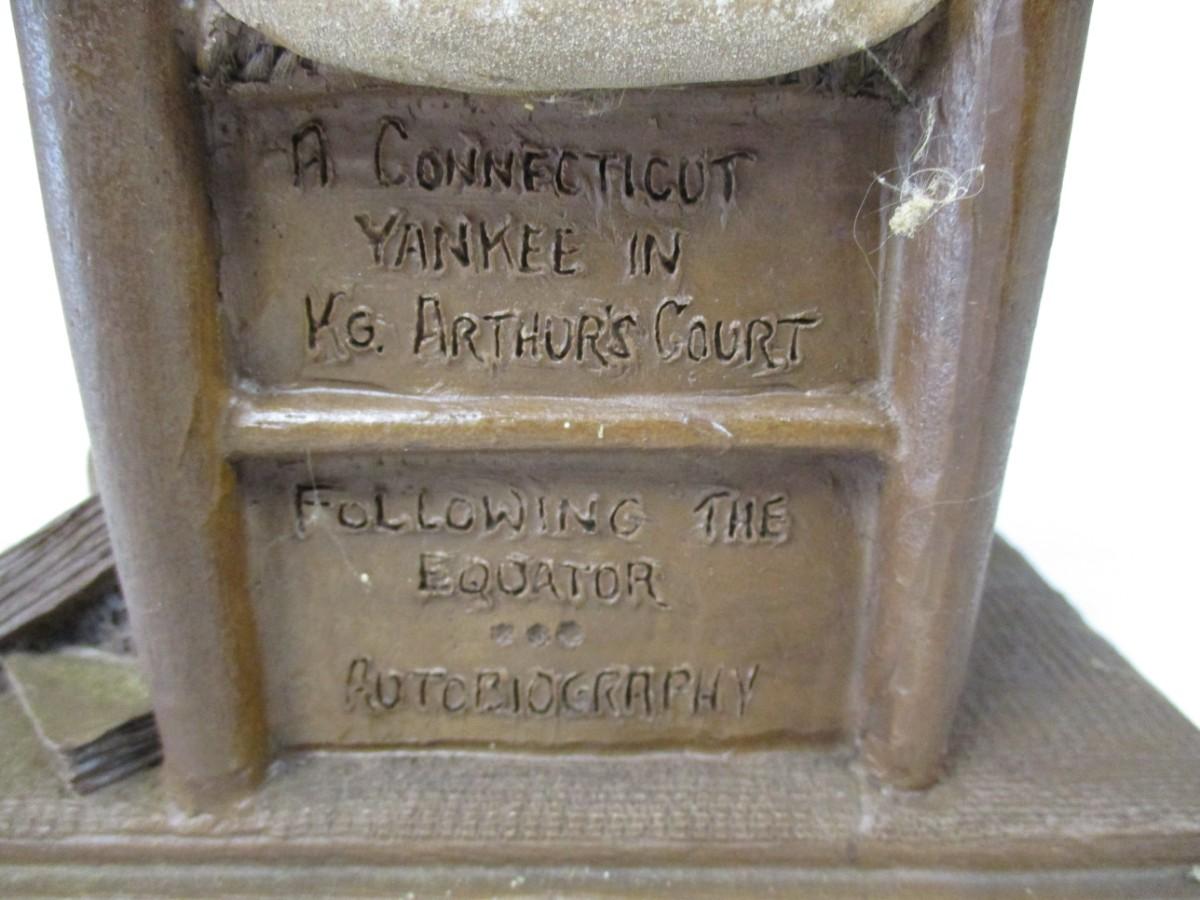 A CONNECTICUT
YANKEE IN
KG. ARTHUR'S COURT
FOLLOWING THE
EQUATOR
***
AUTOBIOGRAPHY